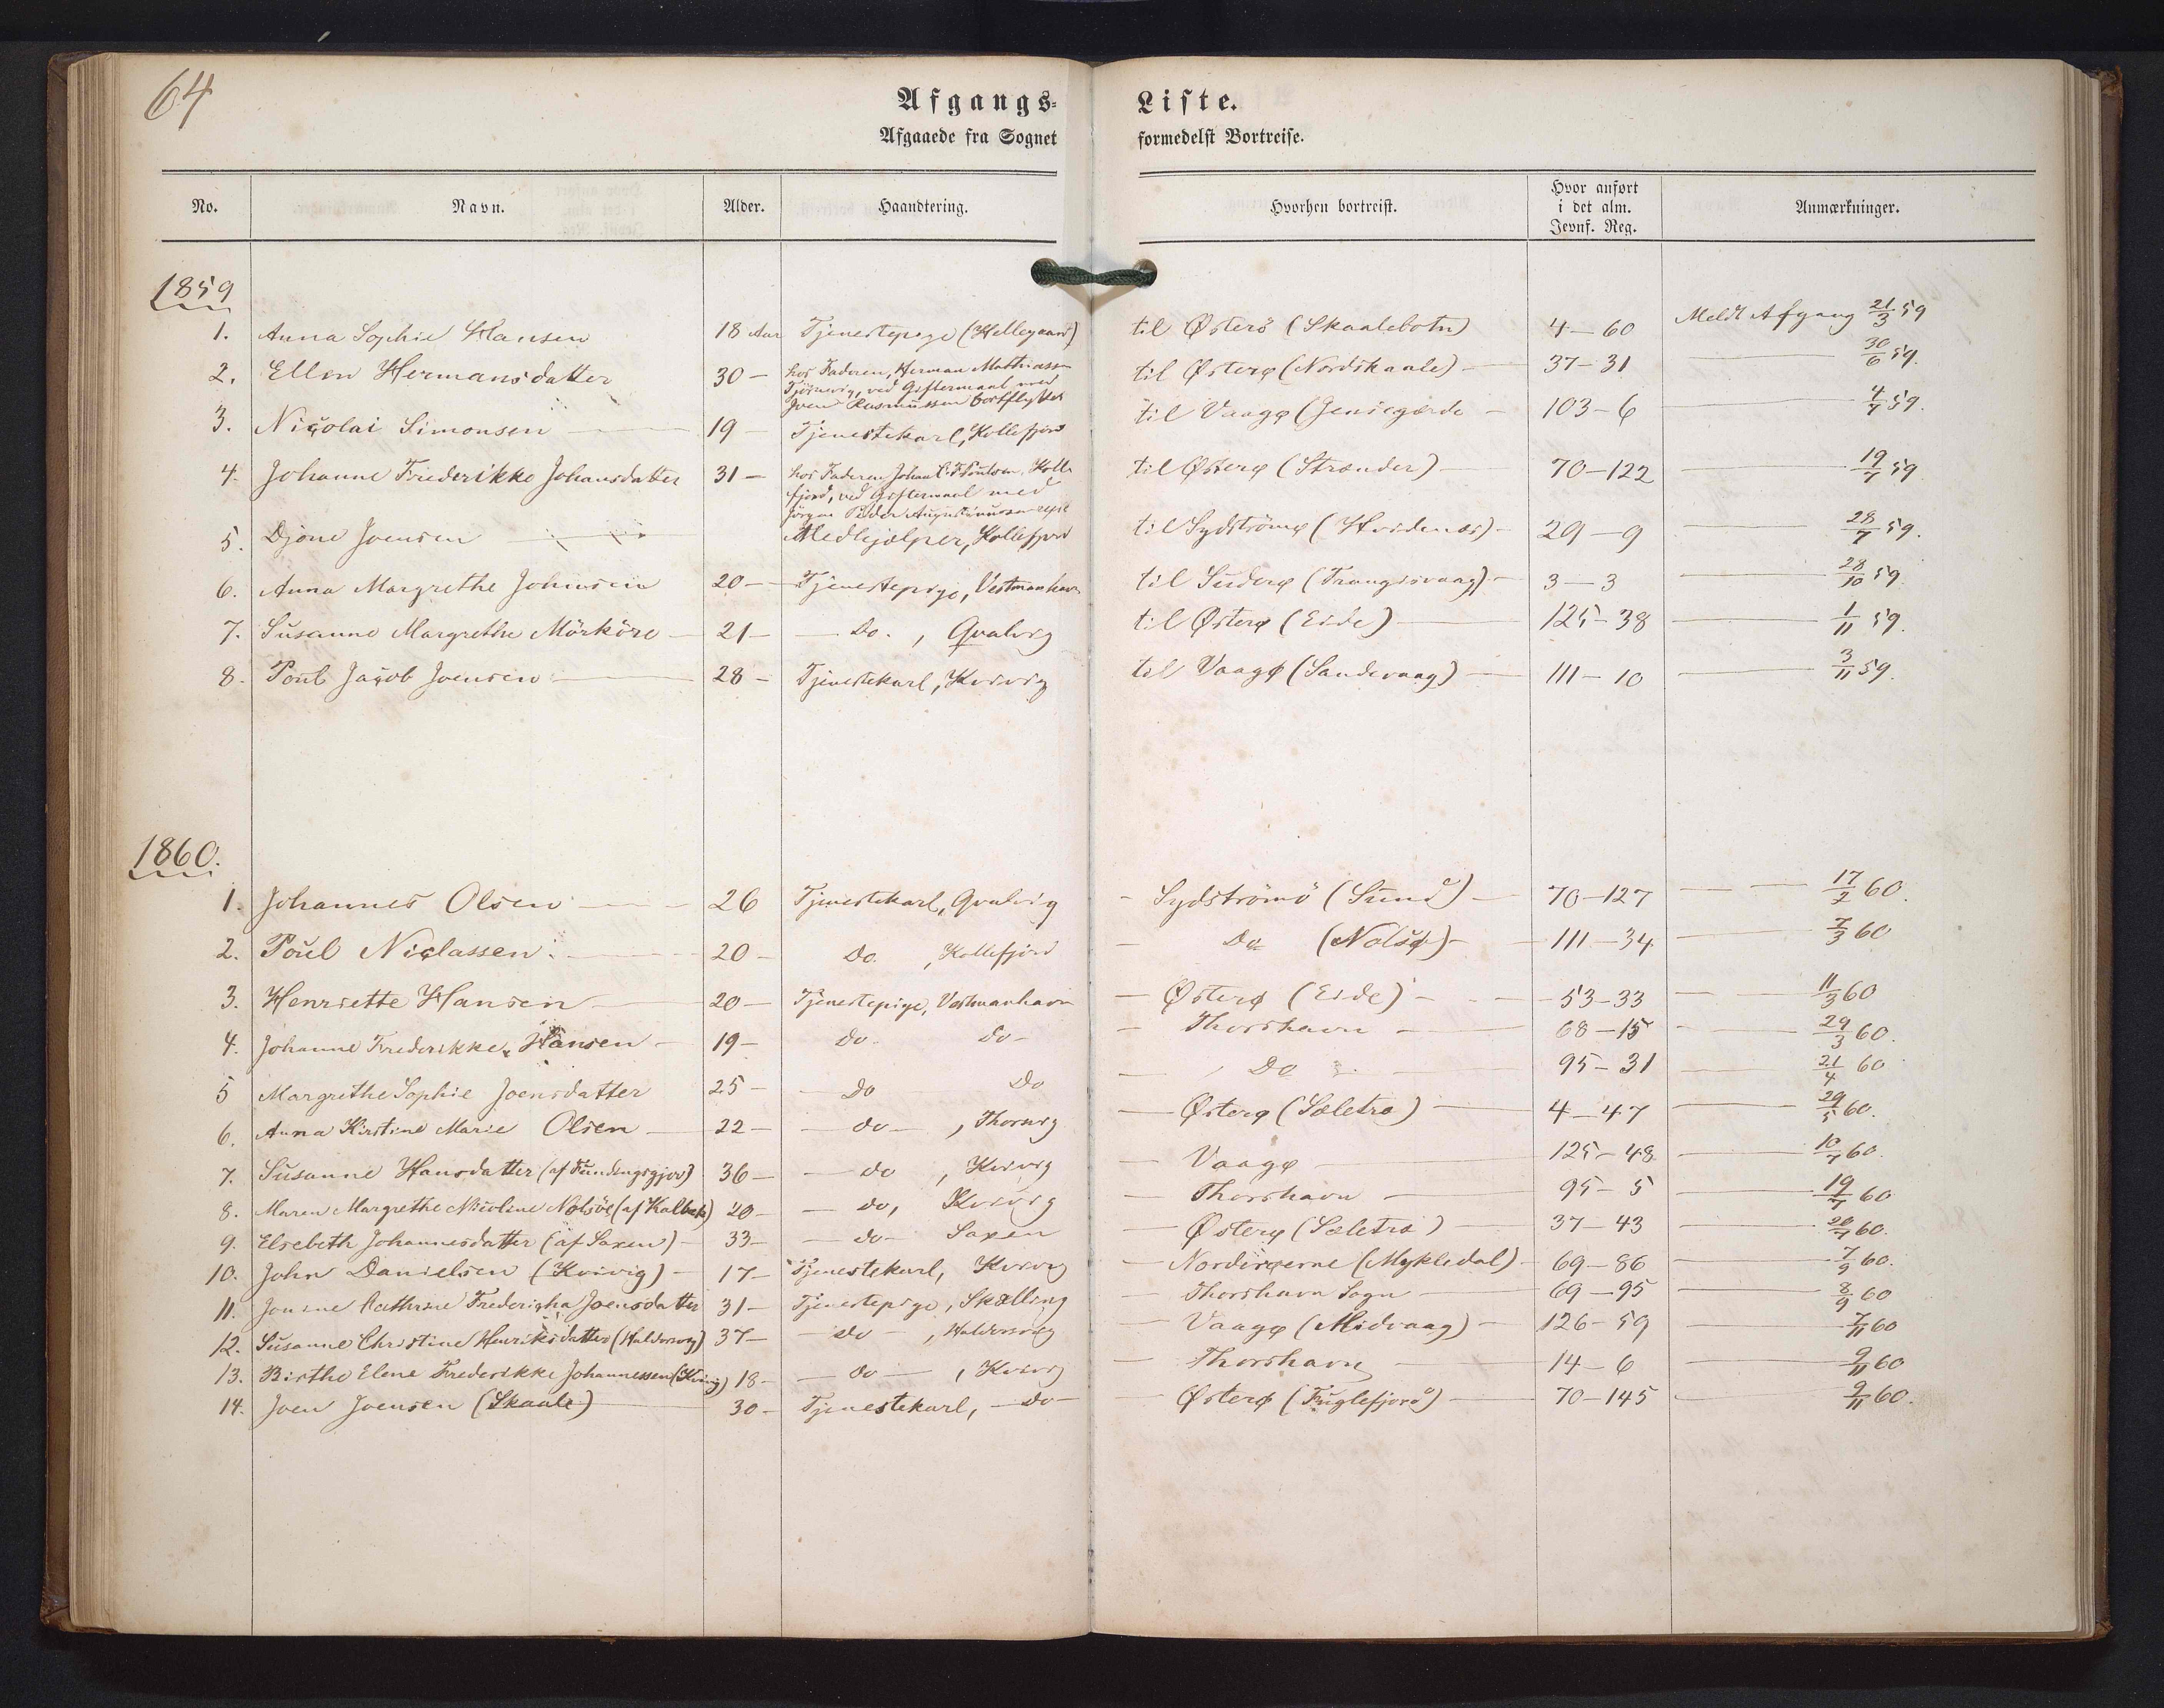 64
Afgangs-Liste.
Afgaaede fra Sognet formedelst Bortreise.
No. Navn. Alder. Haandtering. Hvorhen bortreist. Hvor anført i det alm. Jevnf. Reg. Anmærkninger.
1859
1. Anna Sophie Hansen 18 Aar Tjenestepige (Hellegaard) til Østerö (Skaalebotn) 4-60 Meldt Afgang 21/3 59
2. Ellen Hermansdatter 30 - hos Faderen, Herman Mathiassen
Tjörnevig, ved Giftermaal med
Joen Rasmussen bortflyttet til Østerø (Nordskaale) - 37-31 30/6 59.
3. Nicolai Simonsen 19 Tjenestekarl, Kollefjord til Vaagø (Jensegærde - 103-6 4/7 59.
4. Johanne Friederikke Johansdatter 31 - hos Faderen Johan Poulsen, Kolle-
fjord, ved Giftermaal med
Jörgen Peder Augustinussen til Østerø (Strænder) - 70-122 19/7 59
5. Djone Joensen Medhjælper, Kollefjord til Sydströmø (Hvidenæs) - 29-9 28/7 59.
6. Anna Margrethe Johnsen 20 - Tjenestepige, Vestmanhavn til Suderø (Trangisvaag) - 3-3 28/10 59
7. Susanne Margrethe Mörköre - 21 - Do. , Qvalvig til Østerø (Eide) 125-38 1/11 59.
8. Poul Jacob Joensen 28 - Tjenestekarl, Kvivig til Vaagø (Sandevaag) - 111-10 3/11 59.
1860.
1. Johannes Olsen 26 Tjenestekarl, Qvalvig - Sydströmö (Sund) - 70-127 17/2 60.
2. Poul Niclassen 20 - Do. , Kollefjord - Do (Nolsø) - 111-34 7/3 60
3. Henriette Hansen 20 - Tjenestepige, Vestmanhavn - Østerø (Eide) - 53-33 11/3 60
4. Johanne Frederikke Hansen - 19 - do. do - - Thorshavn 68-15 29/3 60.
5 Margrethe Sophie Joensdatter 25 - Do Do - Do 95-31 21/4 60
6. Anna Kirstine Marie Olsen - 22 - do - , Thorsvig - Østerø (Sæletræ) 4-47 29/5 60.
7. Susanne Hansdatter (af Fundingsgjov) 36 - do , Kvivig - Vaagø 125-48 10/7 60.
8. Maren Margrethe Nicoline Nolsöe (af Kalbak) 20 - do, Kvivig - Thorshavn 95-5 19/7 60
9. Elsebeth Johannesdatter (af Saxen) - 33 - do - Saxen - Østerø (Sæletræ) 37-43 20/7 60.
10. John Danielsen (Kvivig) - 17 - Tjenestekarl, Kvivig - Norderøerne (Mykledal) - 69-86 7/9 60.
11. Cathrine Joensdatter 31 - Tjenestepige, Skælling - Thorshavn Sogn 69-95 8/9 60
12. Susanne Christine Henriksdatter (Haldersvig) 37 - do - , Haldersvig - Vaagø (Midvaag) - 126-59 7/11 60
13. Birthe Elene Frederikke Johannessen (Kvivig) 18 - do - , Kvivig - Thorshavn 14-6 9/11 60
14. Joen Joensen (Skaale) 30 - Tjenestekarl, - do - - Østerø (Fuglefjord) - 70-145 9/11 60.